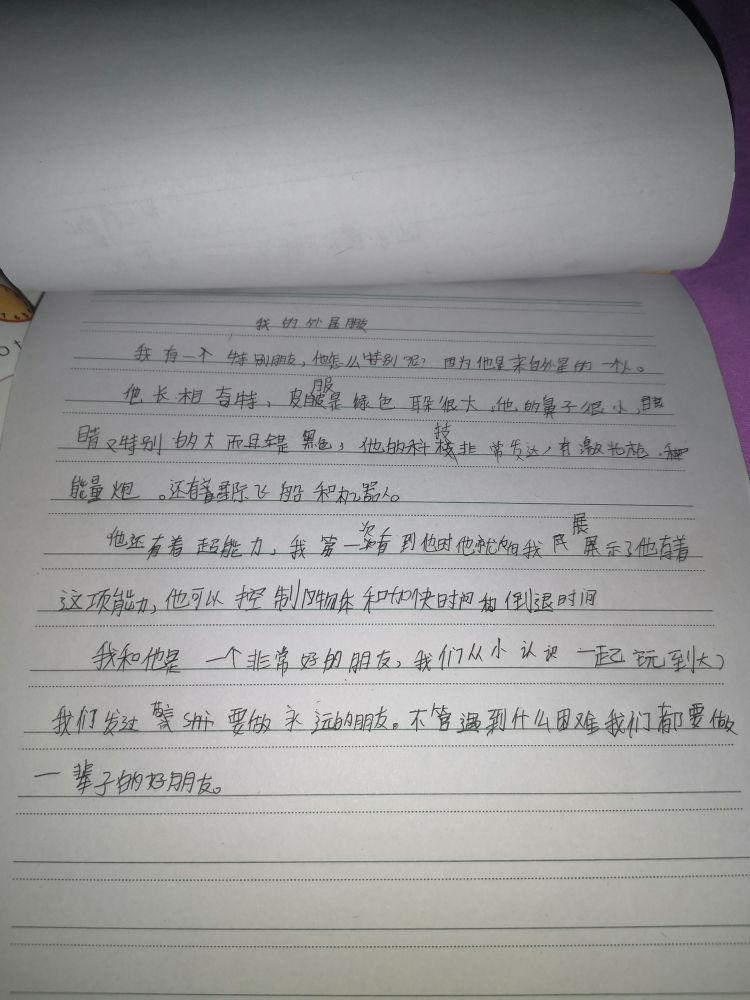 我的外星朋友
我有一个特别朋友,他怎么特别呢?因为他是来自外星的一个人。
他长相奇特,皮服是绿色耳朵很大,他的鼻子很小,眼
睛又特别的大而且是黑色,他的科技非常发达,有激光枪.和
能量炮。还有着星际飞船和机器人。
他还有着超能力,我第一次看到他时他就向我展示了他有着
这项能力,他可以控制物体和加快时间和倒退时间
我和他是一个非常好的朋友,我们从小认识一起玩到大,
我们发过誓shi要做永远的朋友。不管遇到什么困难我们都要做
一辈子的好朋友。